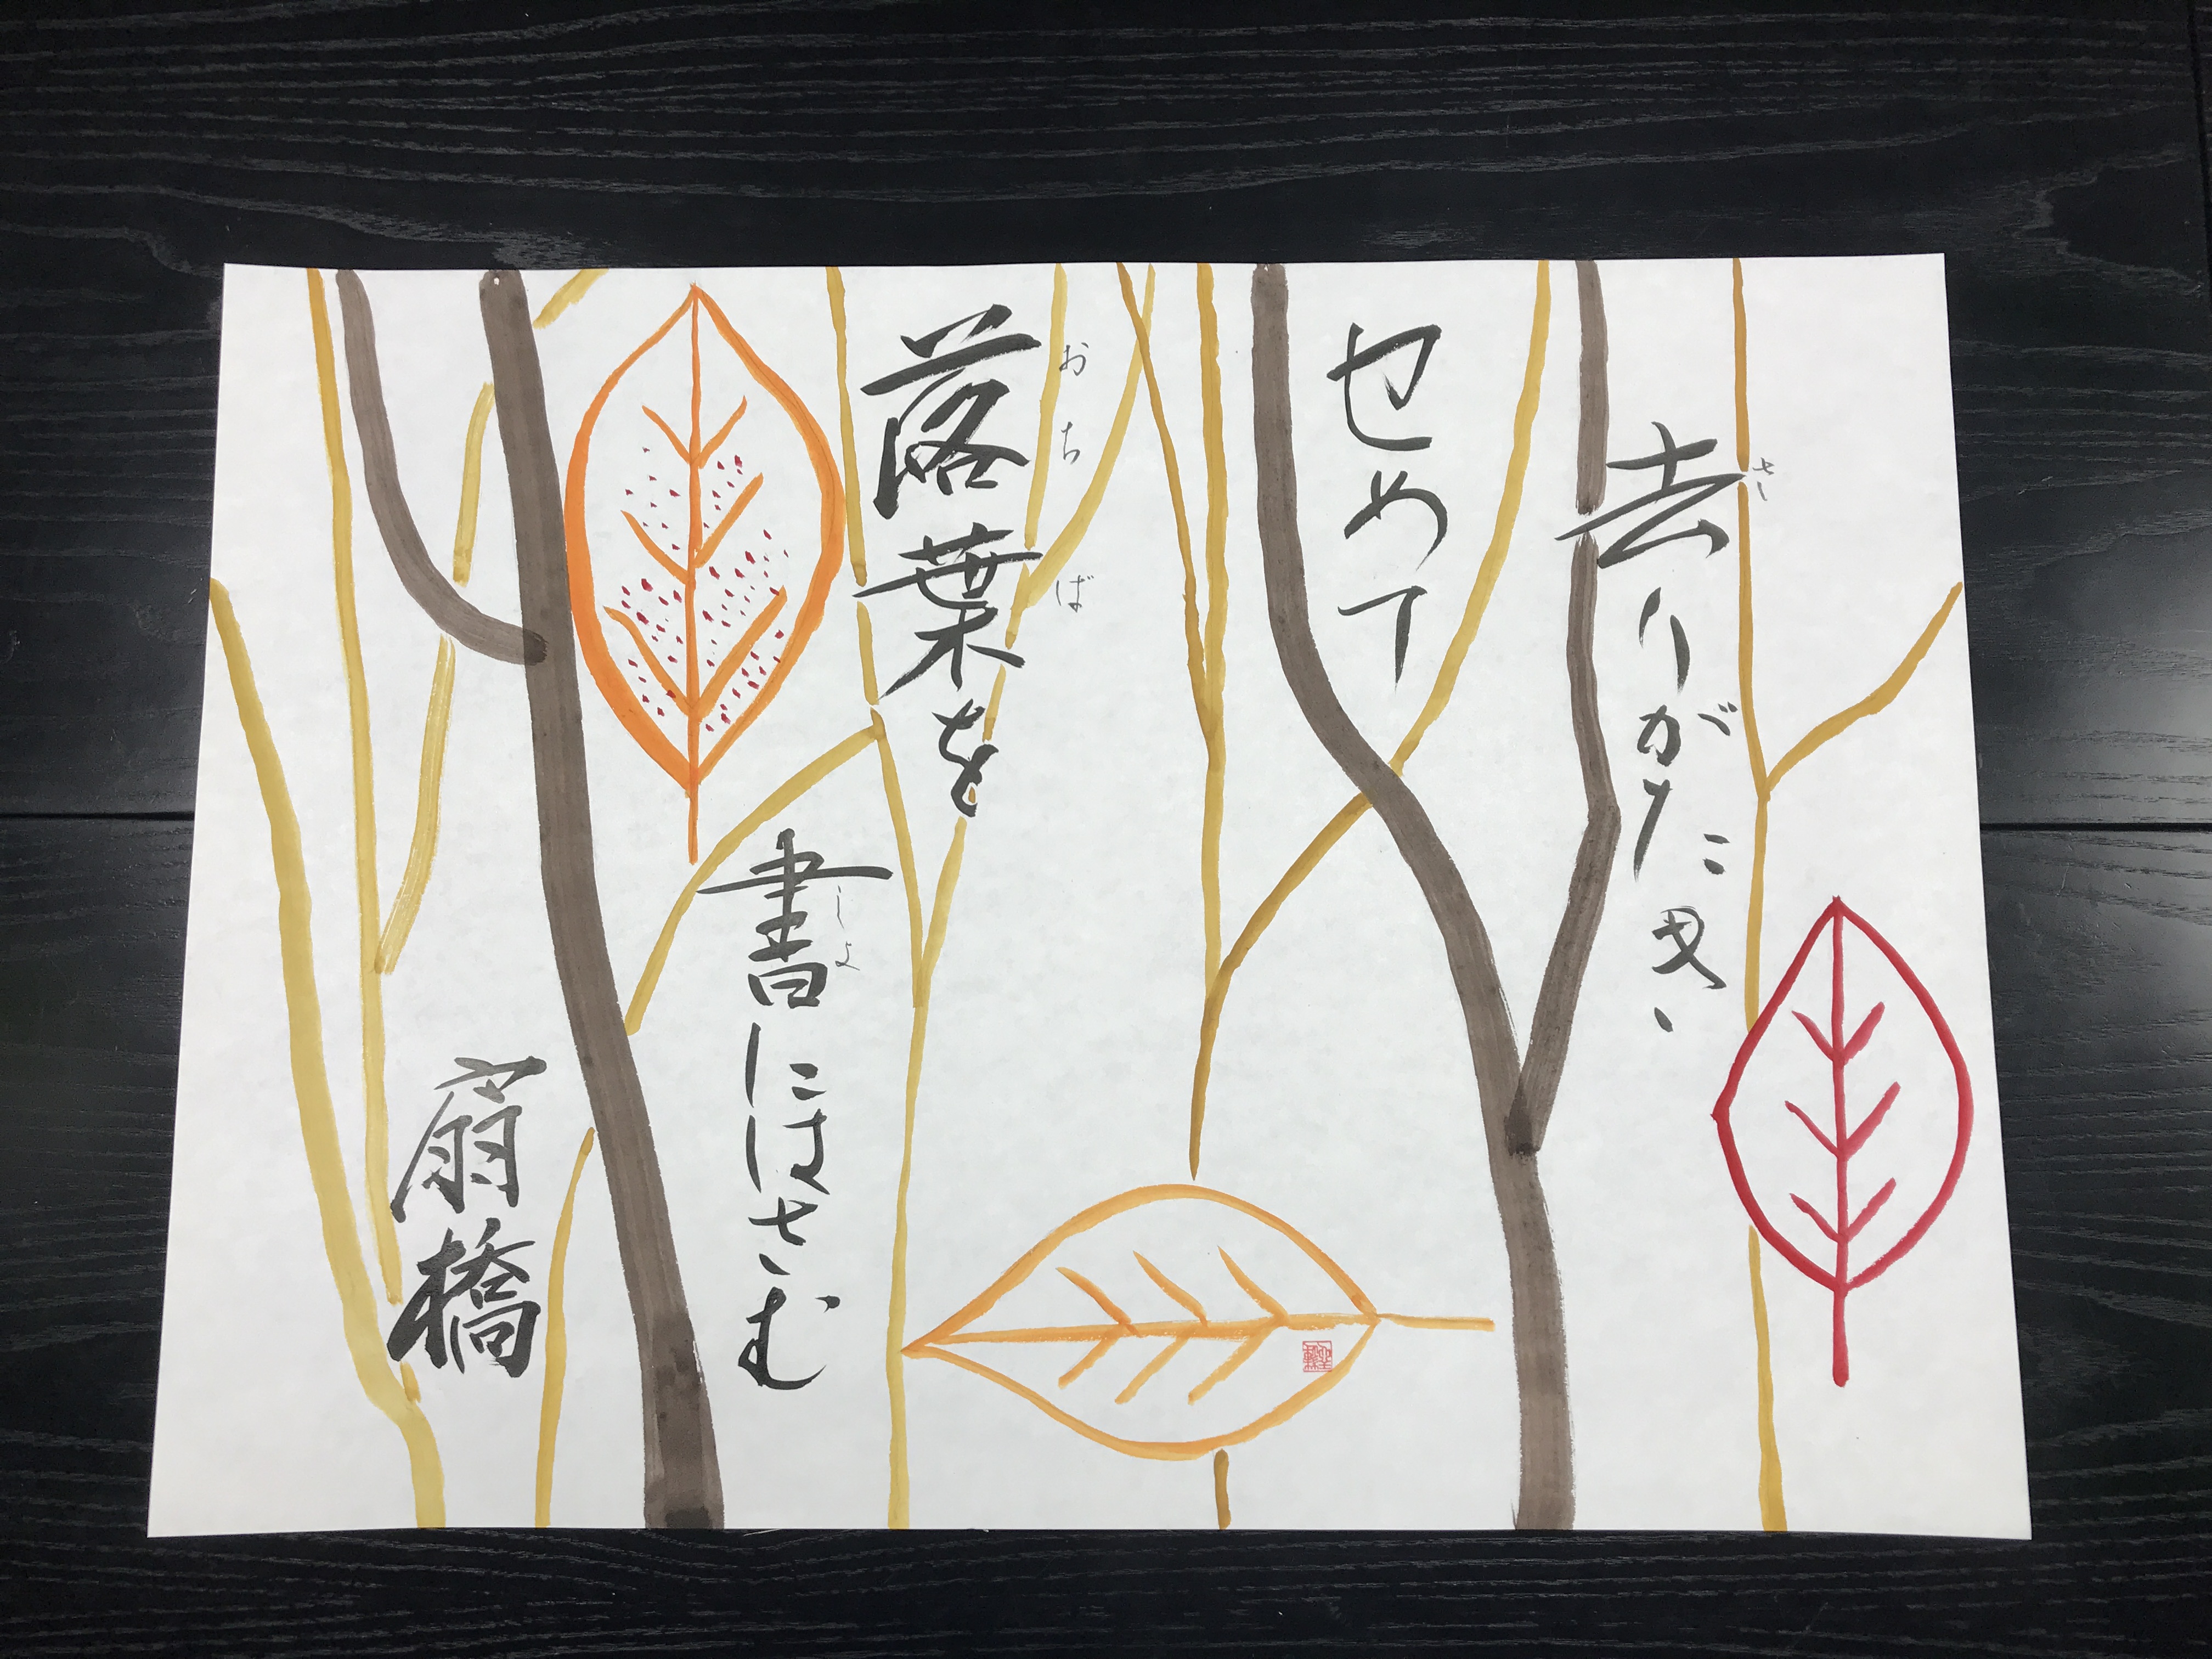 去りがた
さ
せめて
落葉を
おちば
書にはさむ
しょ
扇橋